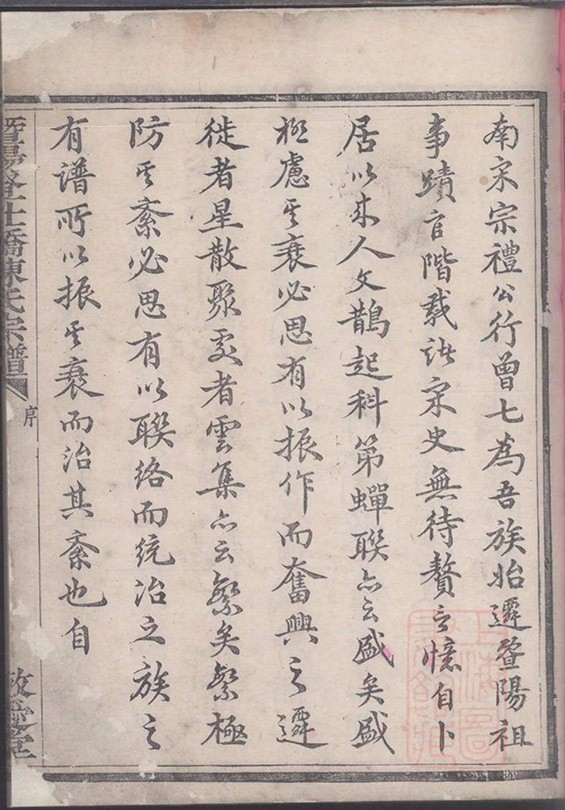 南宋宗禮公行曾七為吾族始遷暨陽祖
事蹟官階載諸宋史無待贅言憶自卜
居以來人文鵲起科第蟬聯亦云盛矣盛
極慮其衰必思有以振作而奮興之遷
徙者星散聚處者雲集亦云繁矣繁極
防其紊必思有以聯絡而統治之族之
有譜所以振其衰而治其紊也自
橋陳氏宗譜
序